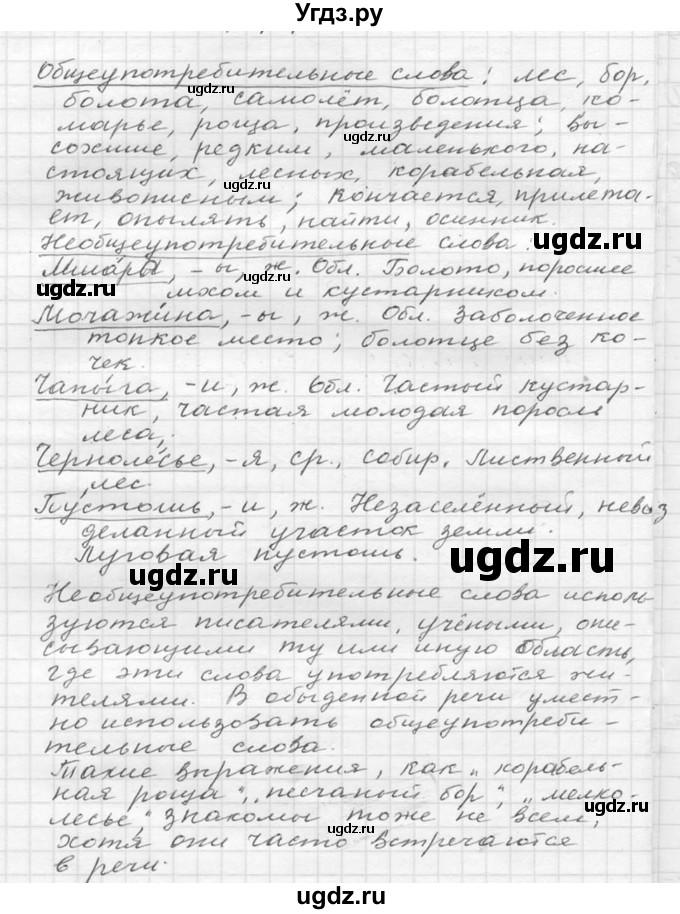 Угдз.ру
Общеупотребительные слова: лес, бор,
болота, самолёт, болотца, ко-
марье, роща, произведения; вы-
сохшие, редким, маленького, на-
стоящих, лесных, корабельная,
живописным; кончается, прилета-
ет, опылять, найти, осенник.
Необщеупотребительные слова:
Мшары, -ы, ж. Обл. Болото, поросшее
мхом и кустарником.
Мочажина, -ы, ж. Обл. Заболоченное
топкое место; болотце без ко-
чек.
Чапыга, -и, ж. Обл. Частый кустар-
ник, частая молодая поросль
леса,
Чернолесье, -я, ср., собир. Лиственный
лес.
Пустошь, -и, ж. Незаселённый, невоз
деланный участок земли.
Луговая пустошь.
Необщеупотребительные слова исполь
зуются писателями, учёными, опи-
сывающими ту или иную область,
где эти слова употребляются жи-
телями. В обыденной речи умест-
но использовать общеупотреби-
тельные слова.
Такие выражения, как „корабель-
ная роща", „песчаный бор", „мелко-
лесье", знакомы тоже не всем,
хотя они часто встречаются
в речи.
ugdz.ru